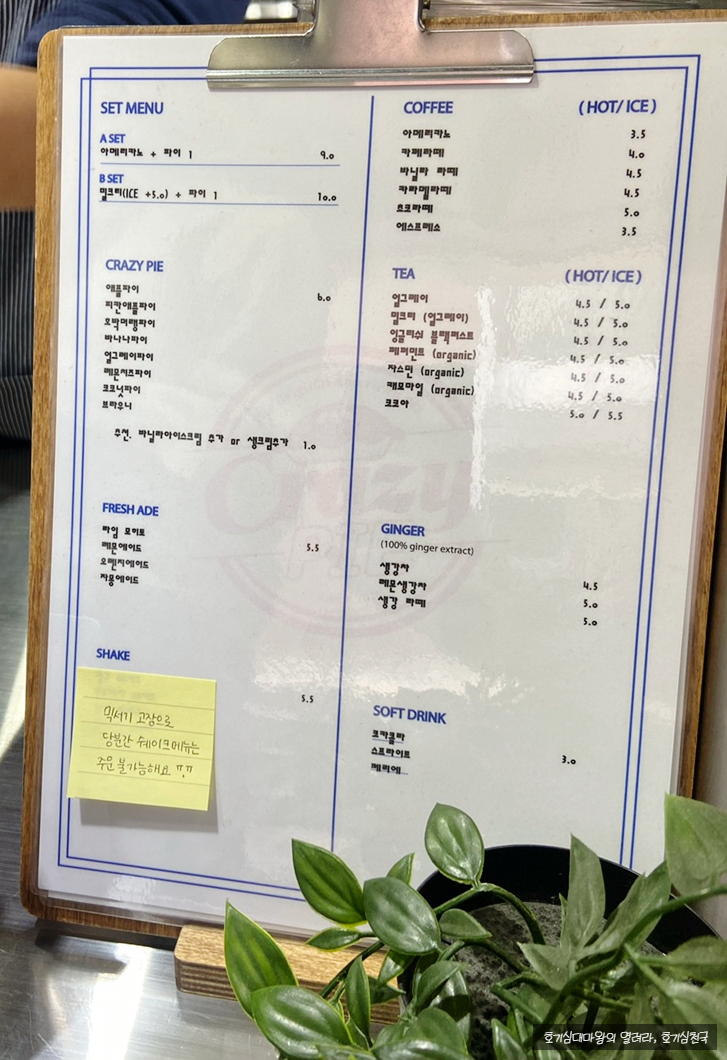 SET MENU
A SET
아메리카노 + 파이 1 9.0
B SET
밀크티(ICE +5.0) + 파이 1 10.0
CRAZY PIE
애플파이 6.0
피칸애플파이
호박머랭파이
바나나파이
얼그레이파이
레몬치즈파이
코코넛파이
브라우니
추천. 바닐라아이스크림 추가 or 생크림추가 1.0
FRESH ADE
라임 모히토
레몬에이드 5.5
오렌지에이드
자몽에이드
SHAKE
5.5
믹서기 고장으로
당분간 쉐이크메뉴는
주문 불가능해요 ㅠ.ㅠ
COFFEE (HOT/ ICE)
아메리카노 3.5
카페라떼 4.0
바닐라 라떼 4.5
카라멜라떼 4.5
초코라떼 5.0
에스프레소 3.5
TEA (HOT/ ICE)
얼그레이 4.5 / 5.0
밀크티 (얼그레이) 4.5 / 5.0
잉글리쉬 블랙퍼스트 4.5 / 5.0
페퍼민트 (organic) 4.5 / 5.0
자스민 (organic) 4.5 / 5.0
캐모마일 (organic) 4.5 / 5.0
코코아 5.0 / 5.5
GINGER
(100% ginger extract)
생강차 4.5
레몬생강차 5.0
생강 라떼 5.0
SOFT DRINK
코카콜라
스프라이트 3.0
페리에
Crazy
호기심대마왕의 열려라, 호기심천국